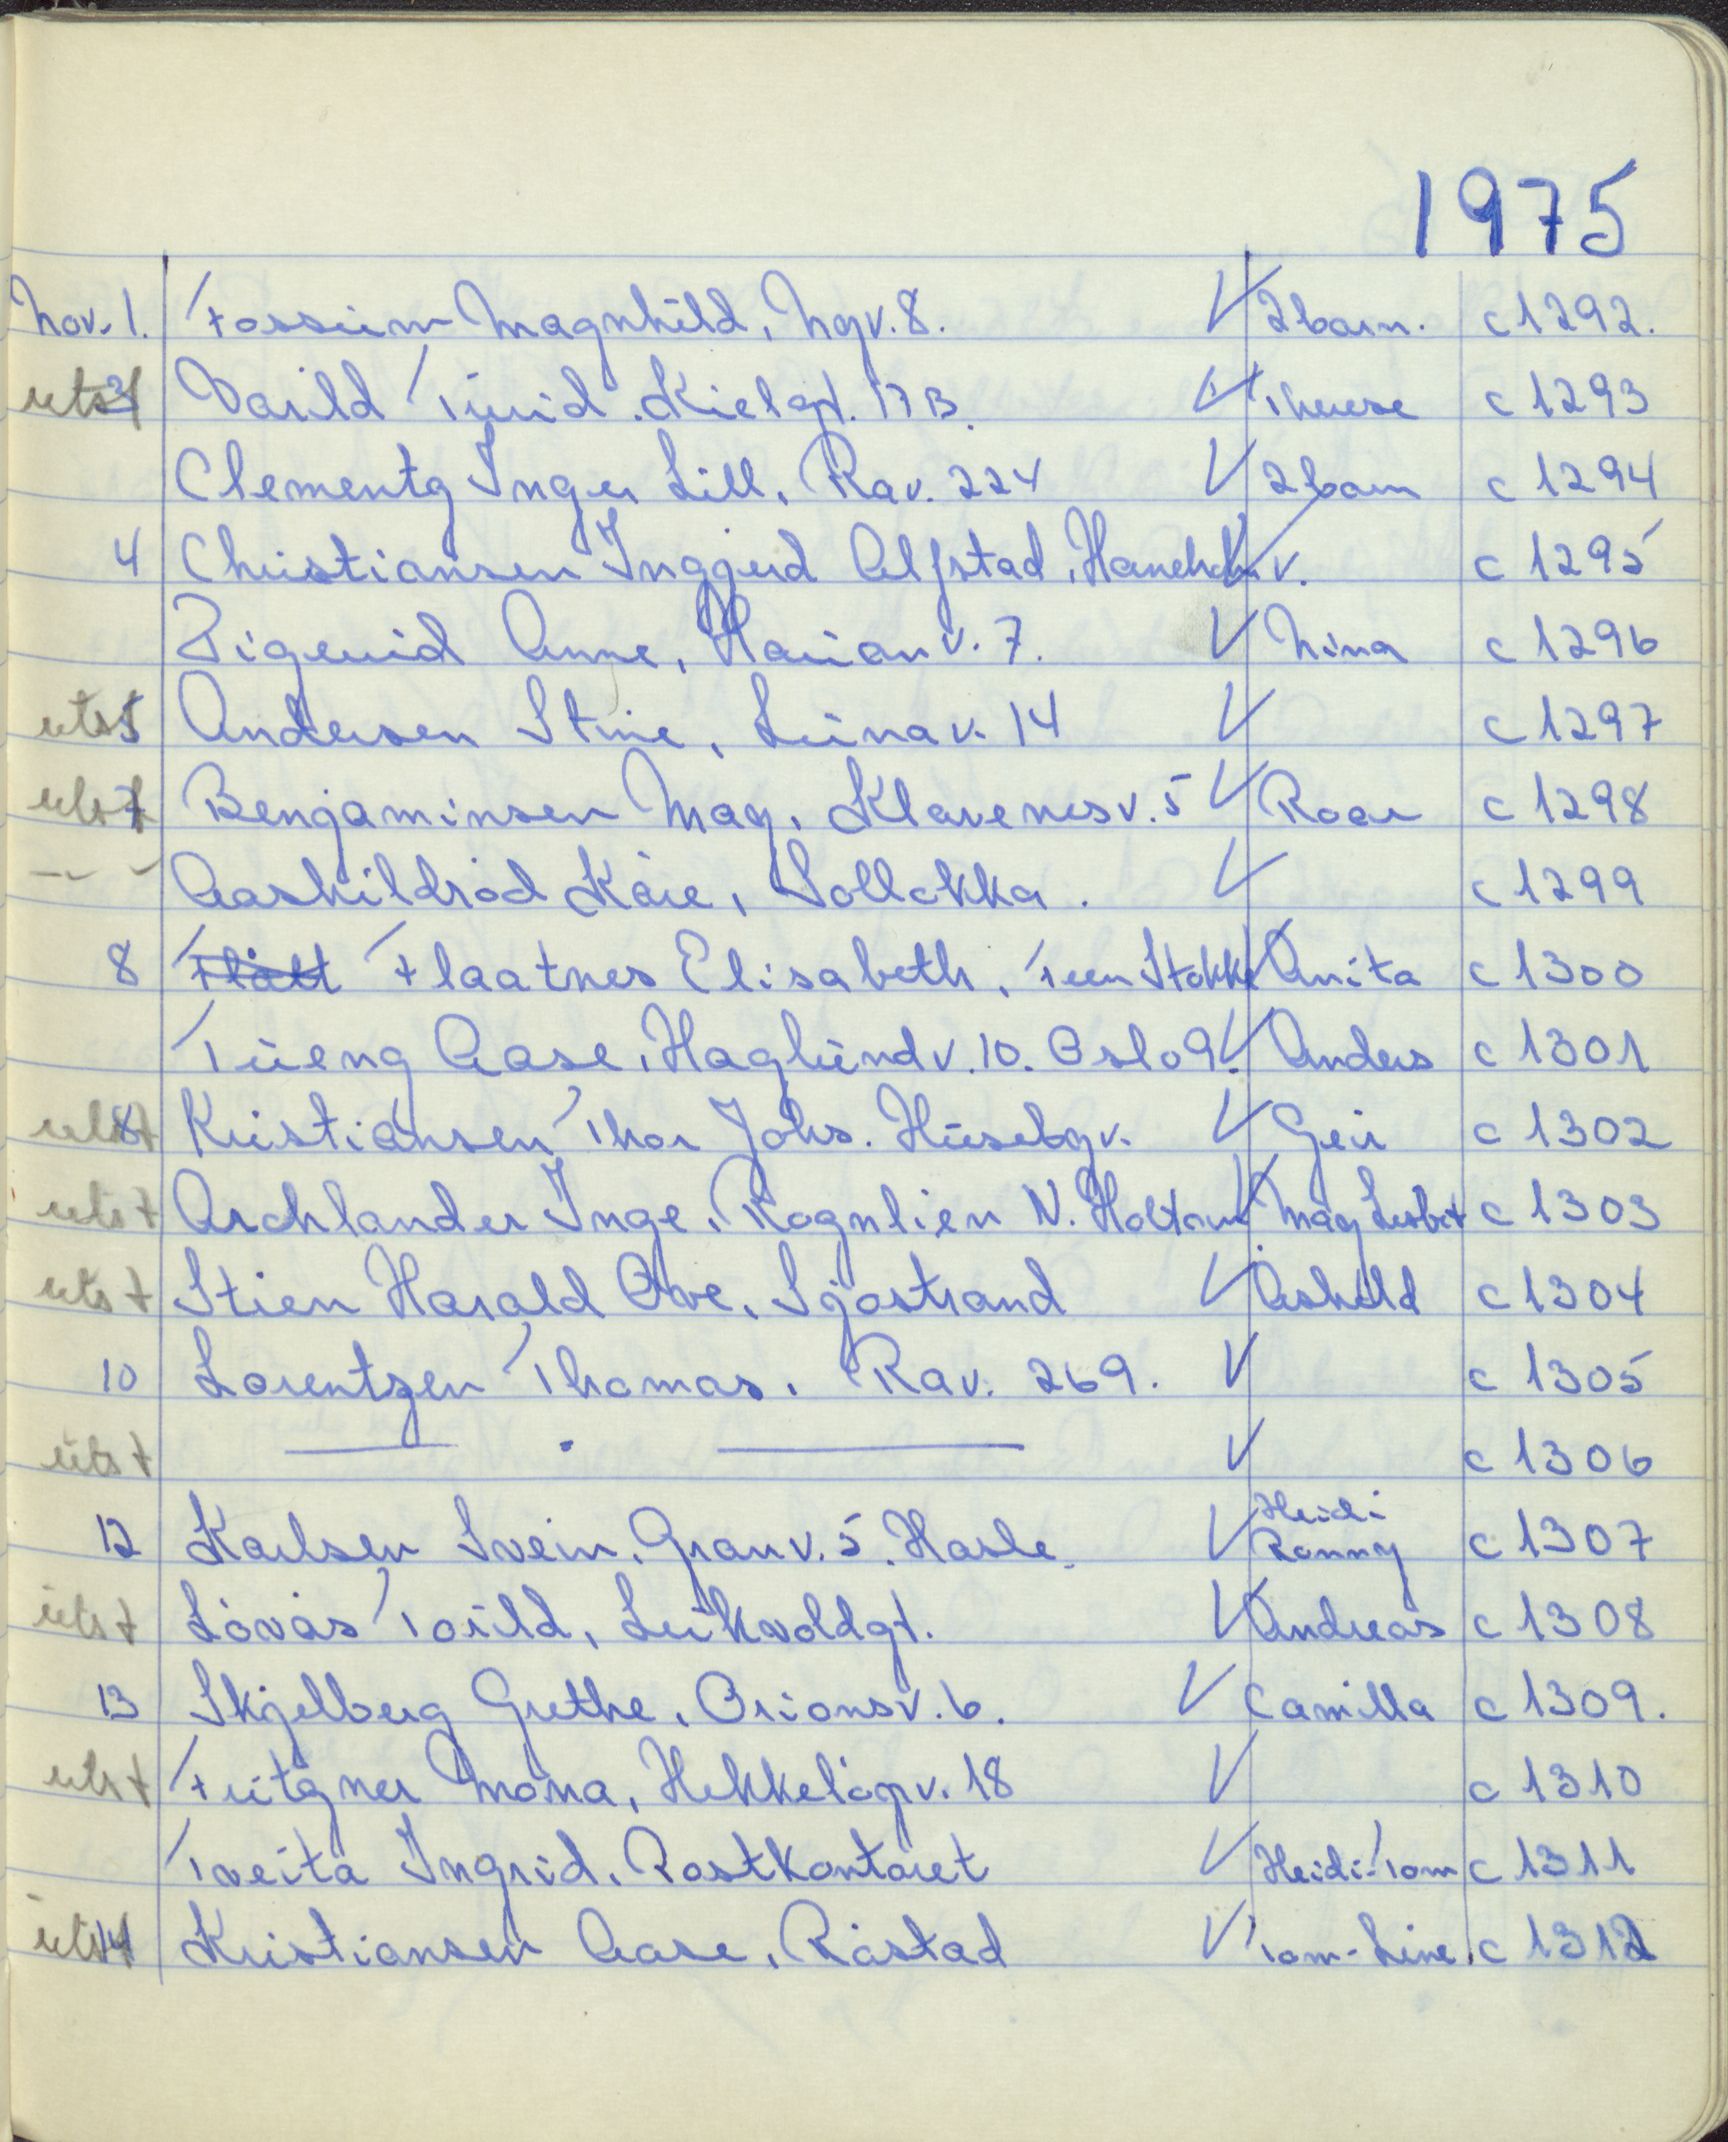 1975
Nov. 1. Fossum Magnhild, Ngv. 8. V 2 barn. c 1292.
utst Varild Turid. Kielgt. 17 B. V Therese c 1293
Clementz Inger Lill, Rav. 224 V 2 barn c 1294
4 Christiansen Inggerd Alfstad, v. V c 1295
Zigerid Anne, Marian v. 7. V Nina c 1296
utst 5 Andersen Stine, Lunav. 14 V c 1297
utst 7 Bengaminsen May, Klavenesv. 5 V Roar c 1298
— " — Aaskildrød Kåre, Solløkka. V c 1299
8 Flått Flaatnes Elisabeth, Feen Stokke V Anita c 1300
Tueng Aase, Haglundv. 10. Oslo 9. V Anders c 1301
utst 8 Kristiansen Thor Johs. Husebyv. V Geir c 1302
utst Archlander Inge, Rognlien N. Holtan V May Lisbet c 1303
utst Stien Harald Ove, Sjøstrand V Ashild c 1304
10 Lorentzen Thomas. Rav. 269. V c 1305
utst — . — V c 1306
12 Karlsen Svein, Granv. 5. Hasle. V Heidi Ronny c 1307
utst Løvås Torild, Leikvoldgt. V Andreas c 1308
13 Skjelberg Grethe, Orionsv. 6. V Camilla c 1309.
utst Feitgner Mona, V 18 c 1310
Tveita Ingrid. Postkontoret V Heidi-Tom c 1311
utst 14 Kristiansen Aase, Råstad V Tom-Line. c 1312